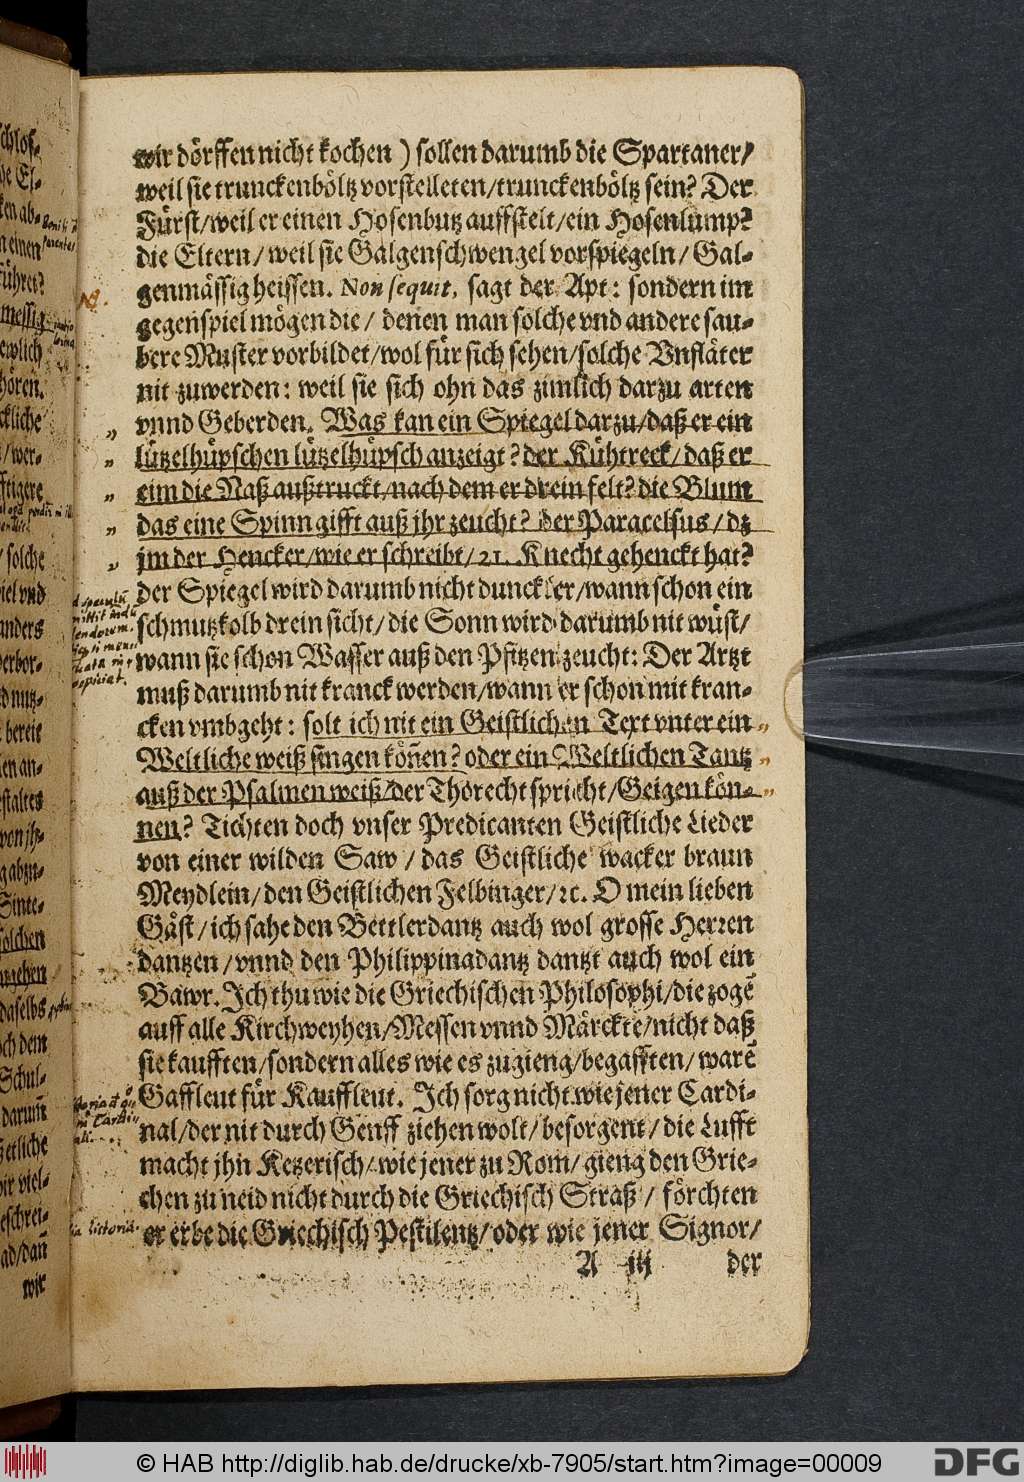 wir dörffen nicht kochen) sollen darumb die Spartaner/
weil sie trunckenböltz vorstelleten/trunckenböltz sein? Der
Fürst/weil er einen Hosenbutz auffstelt/ein Hosenlump?
die Eltern/weil sie Galgenschwengel vorspiegeln/Gal-
genmässig heissen. Non sequit, sagt der Apt: sondern im
gegenspiel mögen die/ denen man solche vnd andere sau-
bere Muster vorbildet/wol für sich sehen/solche Vnfläter
nit zuwerden: weil sie sich ohn das zimlich darzu arten
vnnd Geberden. Was kan ein Spiegel darzu/daß er ein
lützelhüpschen lützelhüpsch anzeigt? der Kühtreck/daß er
eim die Naß außtruckt/nach dem er drein felt? die Blum
das eine Spinn gifft auß jhr zeucht? der Paracelsus/dz
jm der Hencker/wie er schreibt/21. Knecht gehenckt hat?
der Spiegel wird darumb nicht dunckler/wann schon ein
schmutzkolb drein sicht/die Sonn wird darumb nit wüst/
wann sie schon Wasser auß den Pfitzen zeucht: Der Artzt
muß darumb nit kranck werden/wann er schon mit kran-
cken vmbgeht: solt ich nit ein Geistlichen Text vnter ein
Weltliche weiß singen köñen? oder ein Weltlichen Tantz
auß der Psalmen weiß/der Thorecht spricht/Geigen kön-
nen? Tichten doch vnser Predicanten Geistliche Lieder
von einer wilden Saw/das Geistliche wacker braun
Meydlein/den Geistlichen Felbinger/ꝛc. O mein lieben
Gäst/ich sahe den Bettlerdantz auch wol grosse Herꝛen
dantzen/vnnd den Philippinadantz dantzt auch wol ein
Bawr. Ich thu wie die Griechischen Philosophi/die zogẽ
auff alle Kirchweyhen/Messen vnnd Märckte/nicht daß
sie kaufften/sondern alles wie es zugieng/begafften/warẽ
Gaffleut für Kauffleut. Ich sorg nicht wie jener Cardi-
nal/der nit durch Genff ziehen wolt/besorgent/die Lufft
macht jhn Ketzerisch/wie jener zu Rom/gieng den Grie-
chen zu neid nicht durch die Griechisch Straß/ förchten
er erbe die Griechisch Pestilentz/oder wie jener Signor/
A iij der
© HAB http://diglib.hab.de/drucke/xb-7905/start.htm?image=00009
DFG